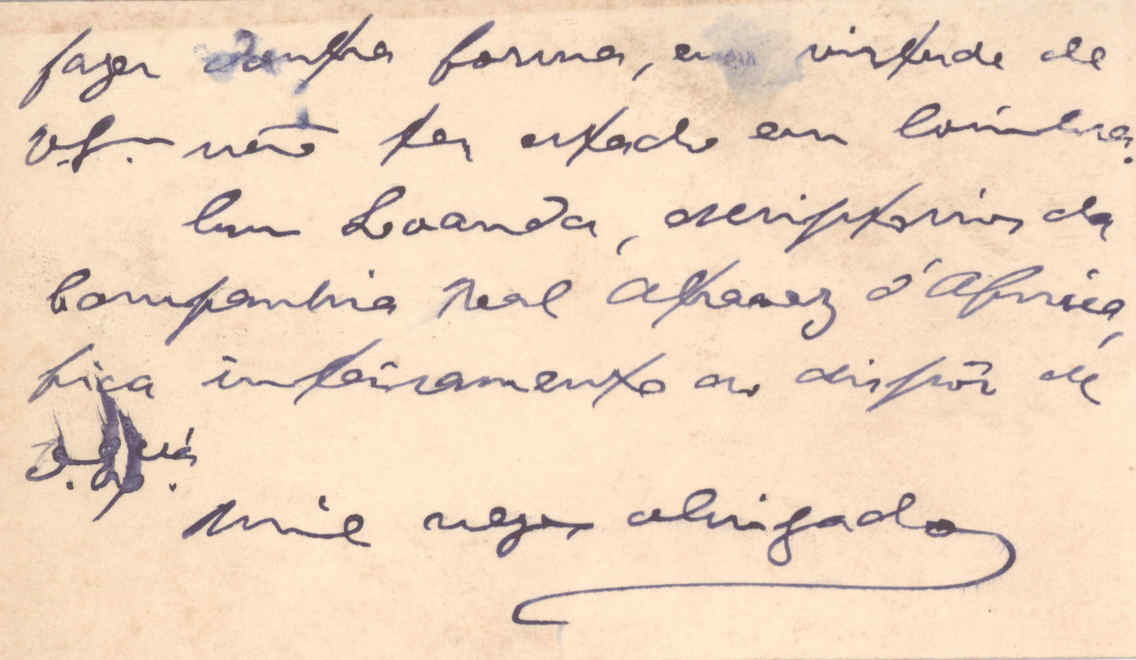 fazer doutra forma, em virtude de
V. S. não ter estado em Coimbra.
Em Loanda, escriptorios da
Companhia Real Atravez d'Africa,
fica inteiramente ao dispôr de
V.
Mil vezes obrigado